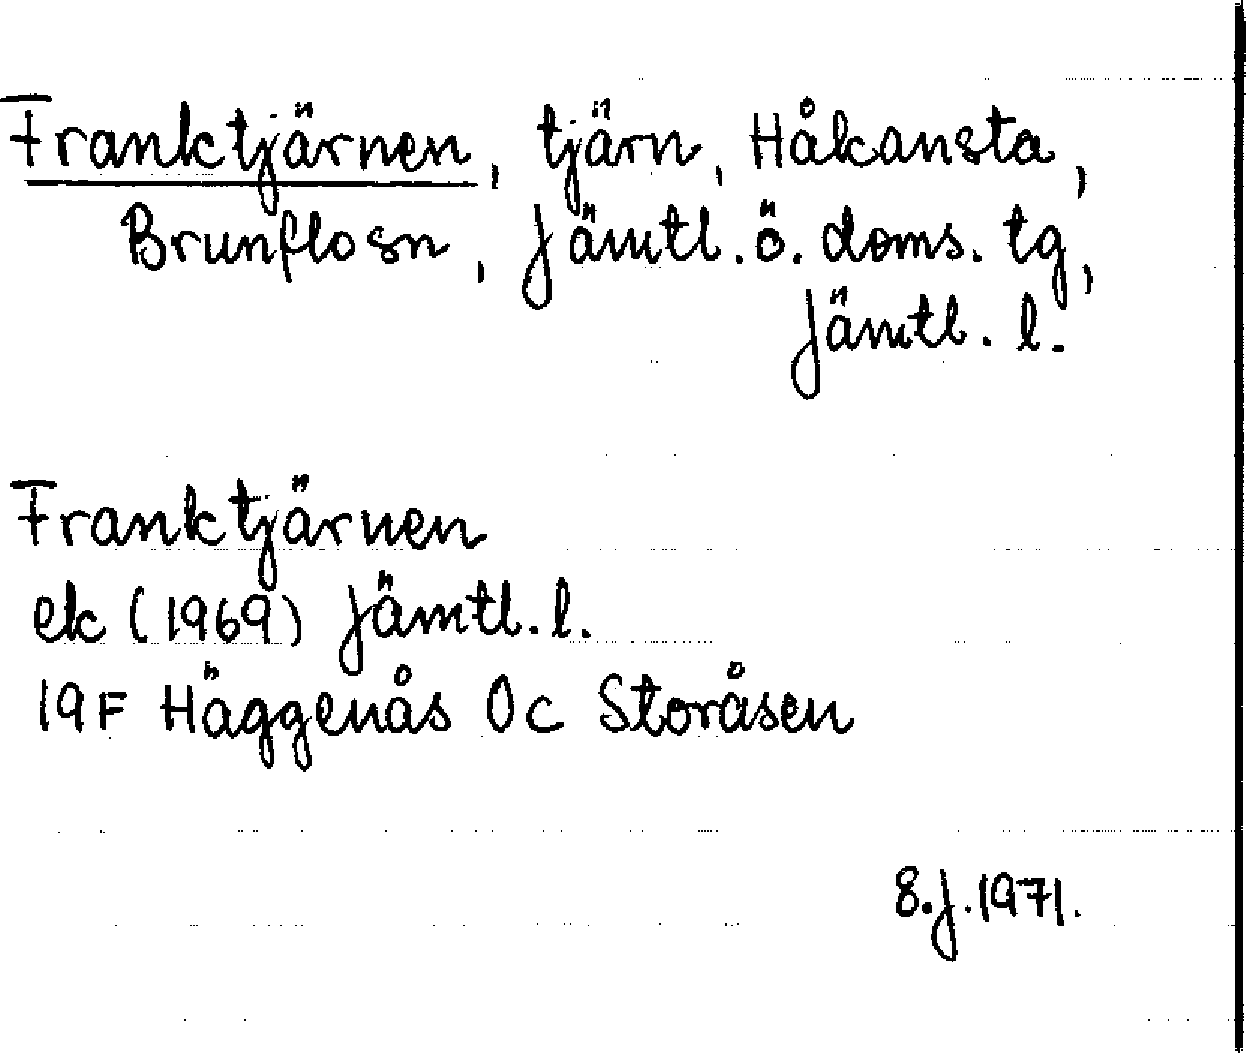 Franktjärnen, tjärn, Håkansta,
Brunflo sn, Jämtl. ö. doms. tg,
Jämtl. l.
Franktjärnen
ek (1969) Jämtl. l.
19F Häggenås 0c Storåsen
8.J.1971.